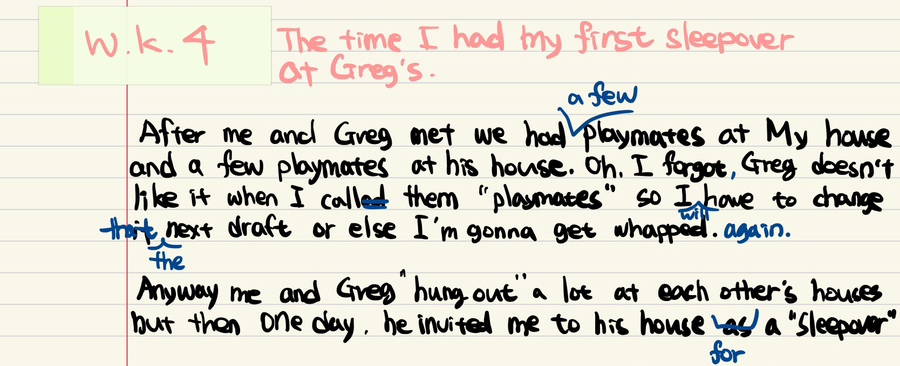 W.k.4
The time I had my first sleepover
at Greg's.
a few
After me and Greg met we had playmates at My house
and a few playmates at his house. Oh, I forgot, Greg doesn't
like it when I called them "playmates" so I have to change
will
that next draft or else I'm gonna get whapped. again.
the
Anyway me and Greg "hung out" a lot at each other's houses
but then one day, he invited me to his house as a "sleepover"
for